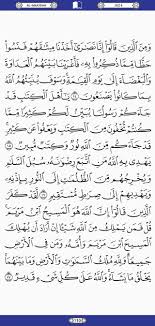 JUZ 6
وَمِنَ ٱلَّذِينَ قَالُوٓا۟ إِنَّا نَصَـٰرَىٰٓ أَخَذْنَا مِيثَـٰقَهُمْ فَنَسُوا۟
حَظًّا مِّمَّا ذُكِّرُوا۟ بِهِۦ فَأَغْرَيْنَا بَيْنَهُمُ ٱلْعَدَاوَةَ
وَٱلْبَغْضَآءَ إِلَىٰ يَوْمِ ٱلْقِيَـٰمَةِ ۚ وَسَوْفَ يُنَبِّئُهُمُ ٱللَّهُ
بِمَا كَانُوا۟ يَصْنَعُونَ ١٤ يَـٰٓأَهْلَ ٱلْكِتَـٰبِ قَدْ
جَآءَكُمْ رَسُولُنَا يُبَيِّنُ لَكُمْ كَثِيرًا مِّمَّا
كُنتُمْ تُخْفُونَ مِنَ ٱلْكِتَـٰبِ وَيَعْفُوا۟ عَن كَثِيرٍ ۚ
قَدْ جَآءَكُم مِّنَ ٱللَّهِ نُورٌ وَكِتَـٰبٌ مُّبِينٌ ١٥
يَهْدِى بِهِ ٱللَّهُ مَنِ ٱتَّبَعَ رِضْوَٰنَهُۥ سُبُلَ ٱلسَّلَـٰمِ
وَيُخْرِجُهُم مِّنَ ٱلظُّلُمَـٰتِ إِلَى ٱلنُّورِ بِإِذْنِهِۦ
وَيَهْدِيهِمْ إِلَىٰ صِرَٰطٍ مُّسْتَقِيمٍ ١٦ لَّقَدْ كَفَرَ
ٱلَّذِينَ قَالُوٓا۟ إِنَّ ٱللَّهَ هُوَ ٱلْمَسِيحُ ٱبْنُ مَرْيَمَ ۚ
قُلْ فَمَن يَمْلِكُ مِنَ ٱللَّهِ شَيْـًٔا إِنْ أَرَادَ أَن يُهْلِكَ
ٱلْمَسِيحَ ٱبْنَ مَرْيَمَ وَأُمَّهُۥ وَمَن فِى ٱلْأَرْضِ
جَمِيعًا ۗ وَلِلَّهِ مُلْكُ ٱلسَّمَـٰوَٰتِ وَٱلْأَرْضِ وَمَا بَيْنَهُمَا ۚ
يَخْلُقُ مَا يَشَآءُ ۚ وَٱللَّهُ عَلَىٰ كُلِّ شَىْءٍ قَدِيرٌ ١٧
110